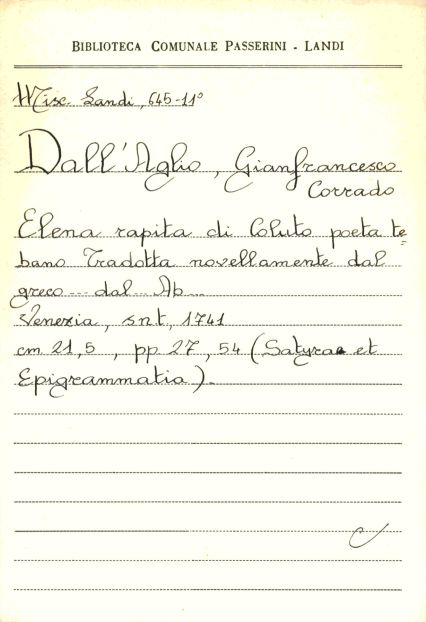 BIBLIOTECA COMUNALE PASSERINI - LANDI
Misc. Landi, 645-11°
Dall'Aglio, Gianfrancesco
Corrado
Elena rapita di Coluto poeta te=
bano Tradotta novellamente dal
greco --- dal Ab...
Venezia, s.n.t., 1741
cm 21,5, pp 27, 54 (Satyrae et
Epigrammatia).